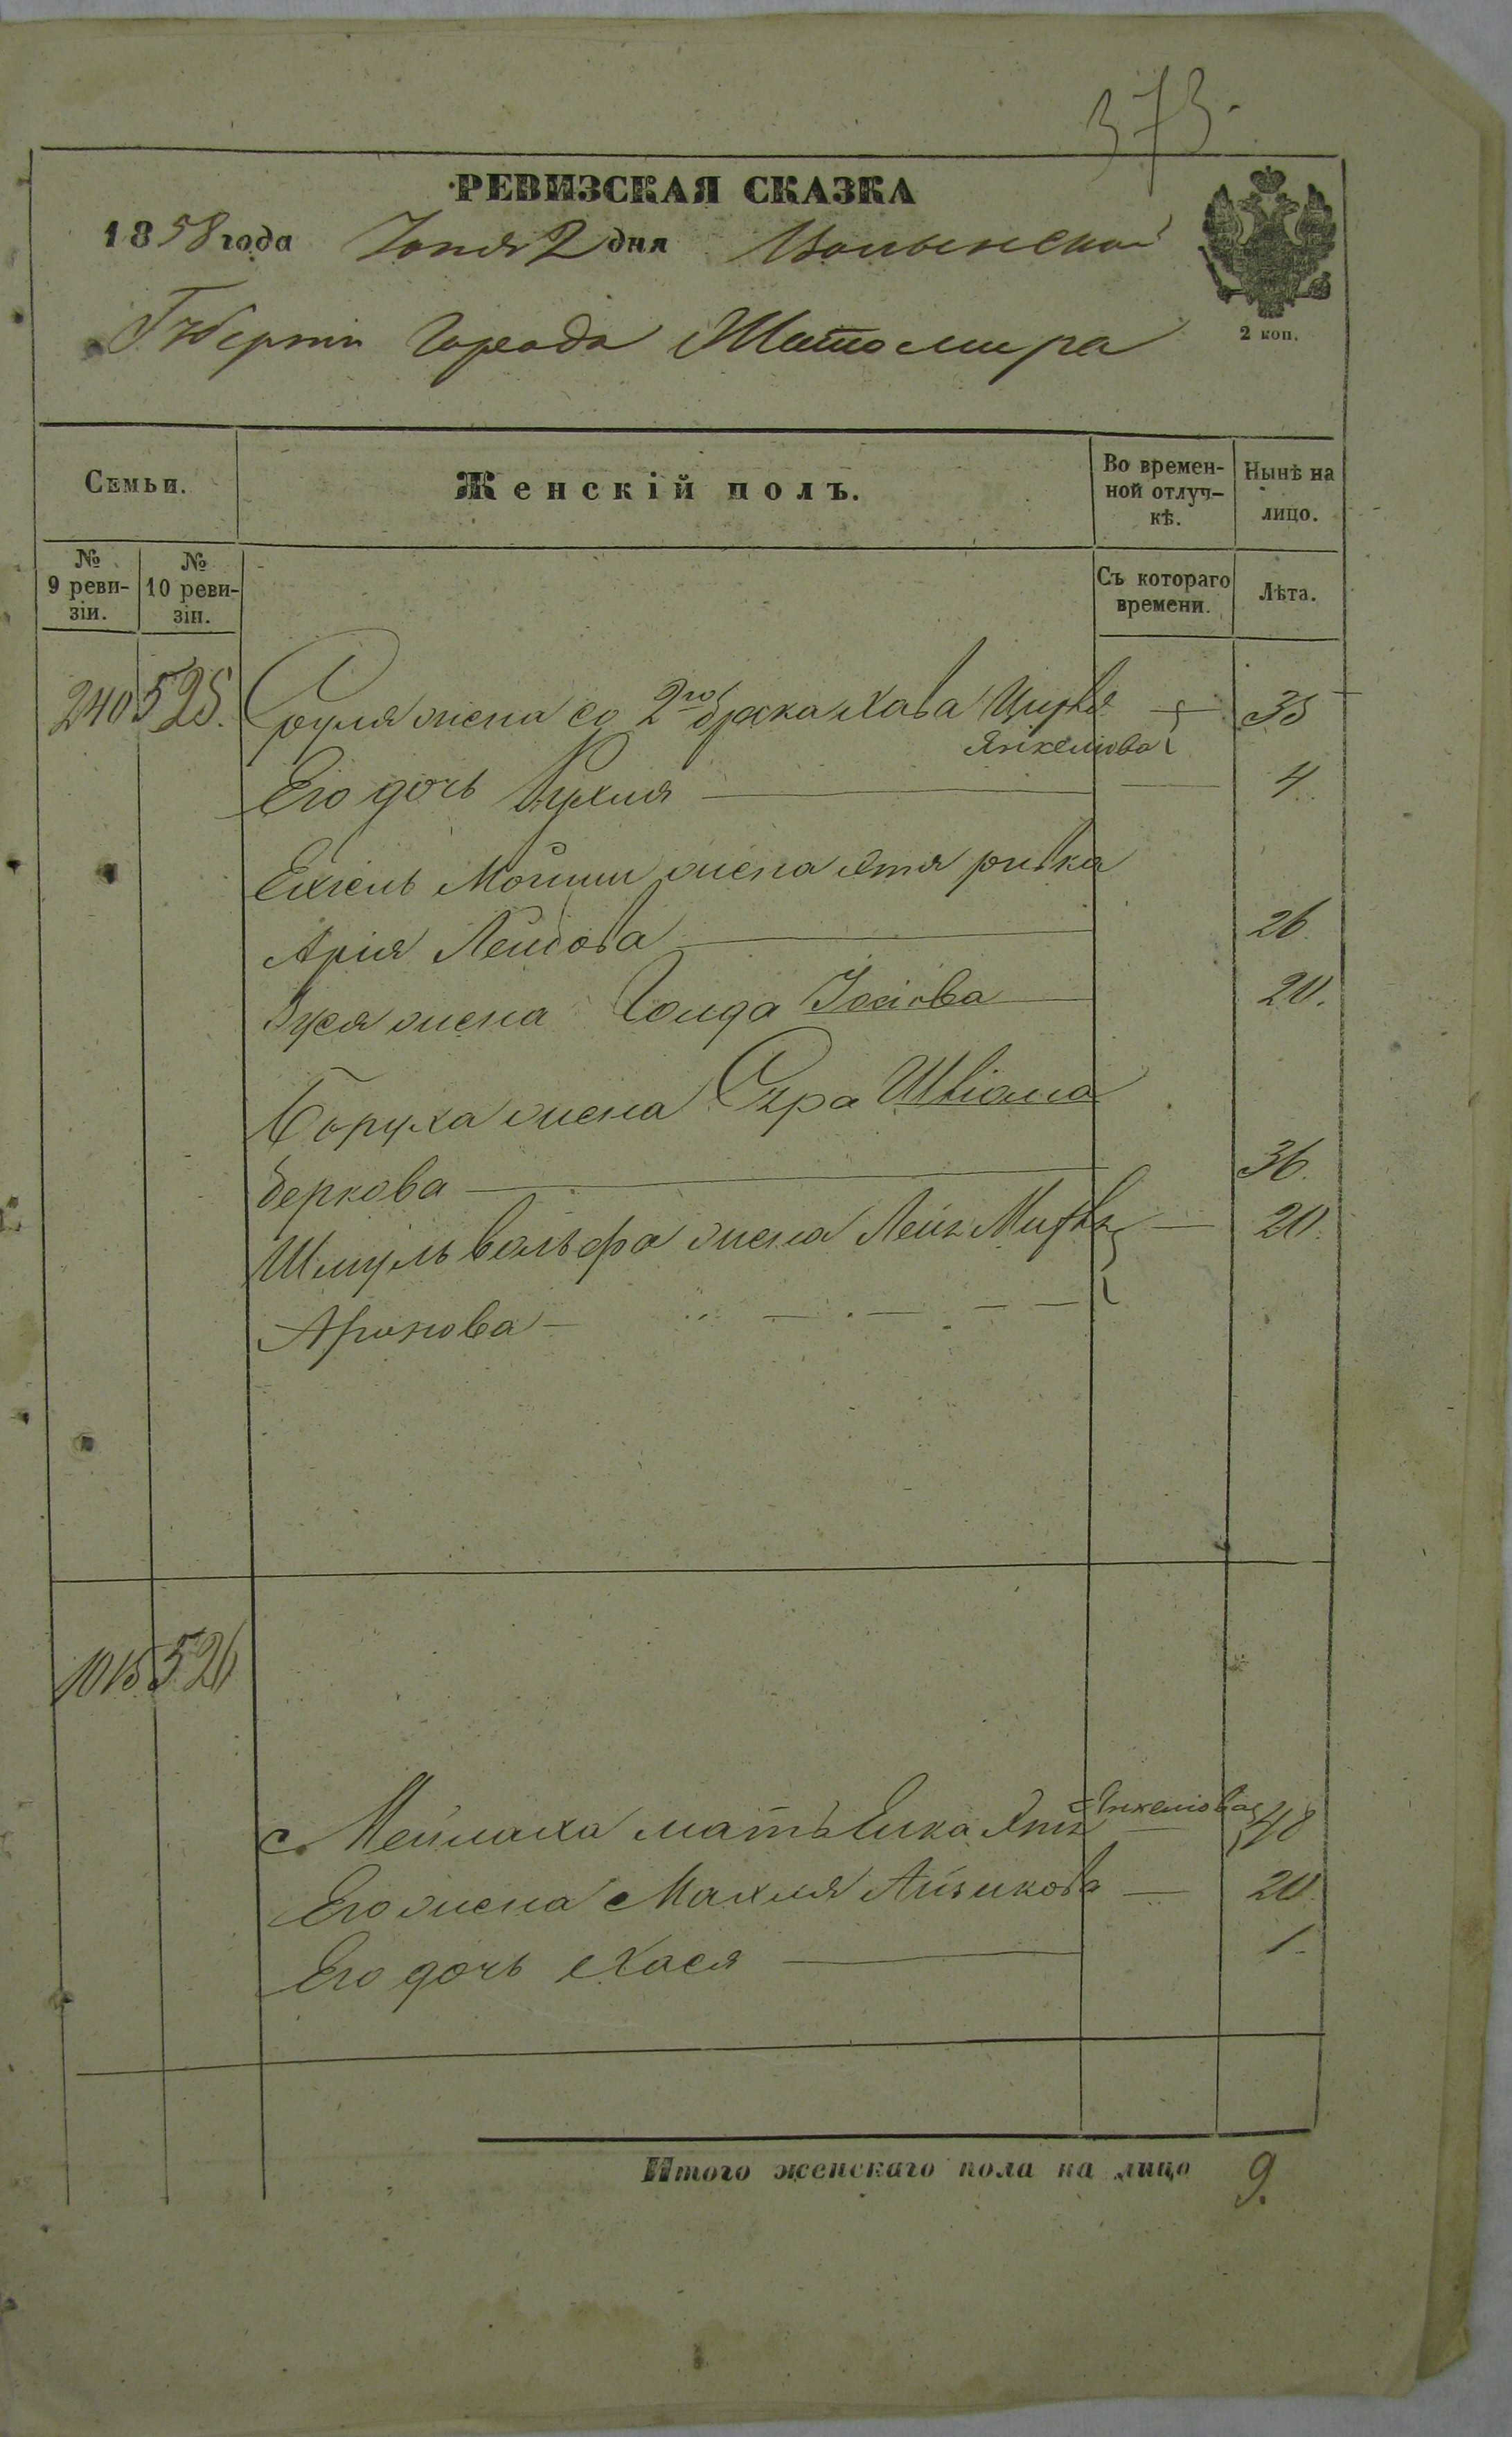 373.
РЕВИЗСКАЯ СКАЗКА
1858 года Іюня 2 дня Волынской
Губерніи Города Житомира
2 коп.
Семьи.
Женскій полъ.
Во времен-
ной отлуч-
кѣ.
Нынѣ на
лицо.
№
9 реви-
зіи.
№
10 реви-
зіи.
Съ котораго
времени.
Лѣта.
240 525. Сруля жена со 2го брака Хава Цирля 35
Янкеліова
Его дочь Рухля 4
Ехіель Мошки жена Этя ривка
Арія Леибова 26.
Зуся жена Голда Іосіова 20.
Боруха жена Сура
беркова 36.
Шмуль вольфа жена 20.
Аронова
1015 526
Меилаха мать Елка Янкеліова 48
Его жена Махля Айзикова 20.
Его дочь Хася 1.
Итого женскаго пола на лицо 9.